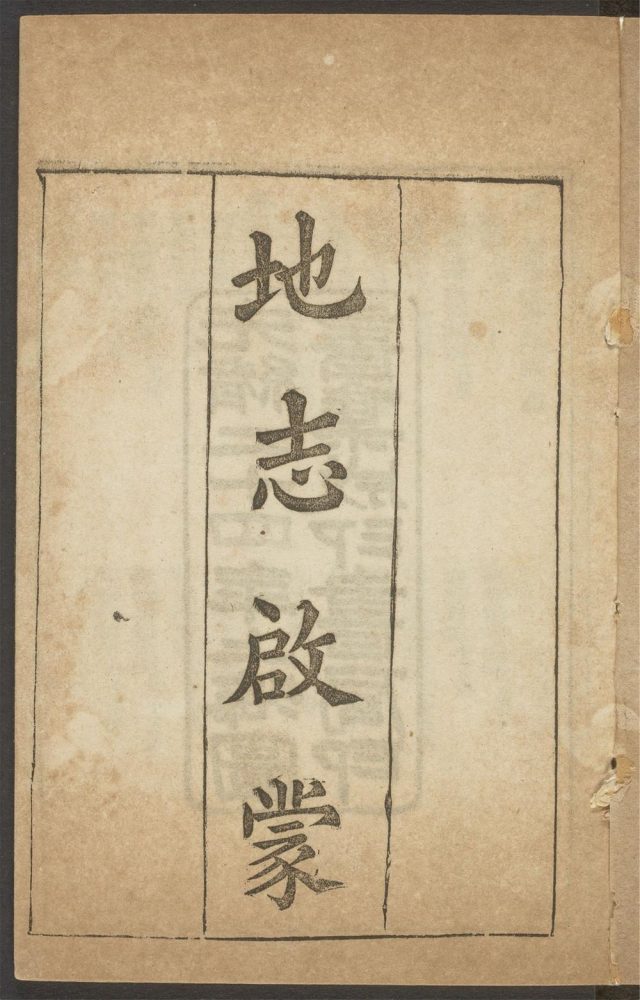 地志啟蒙